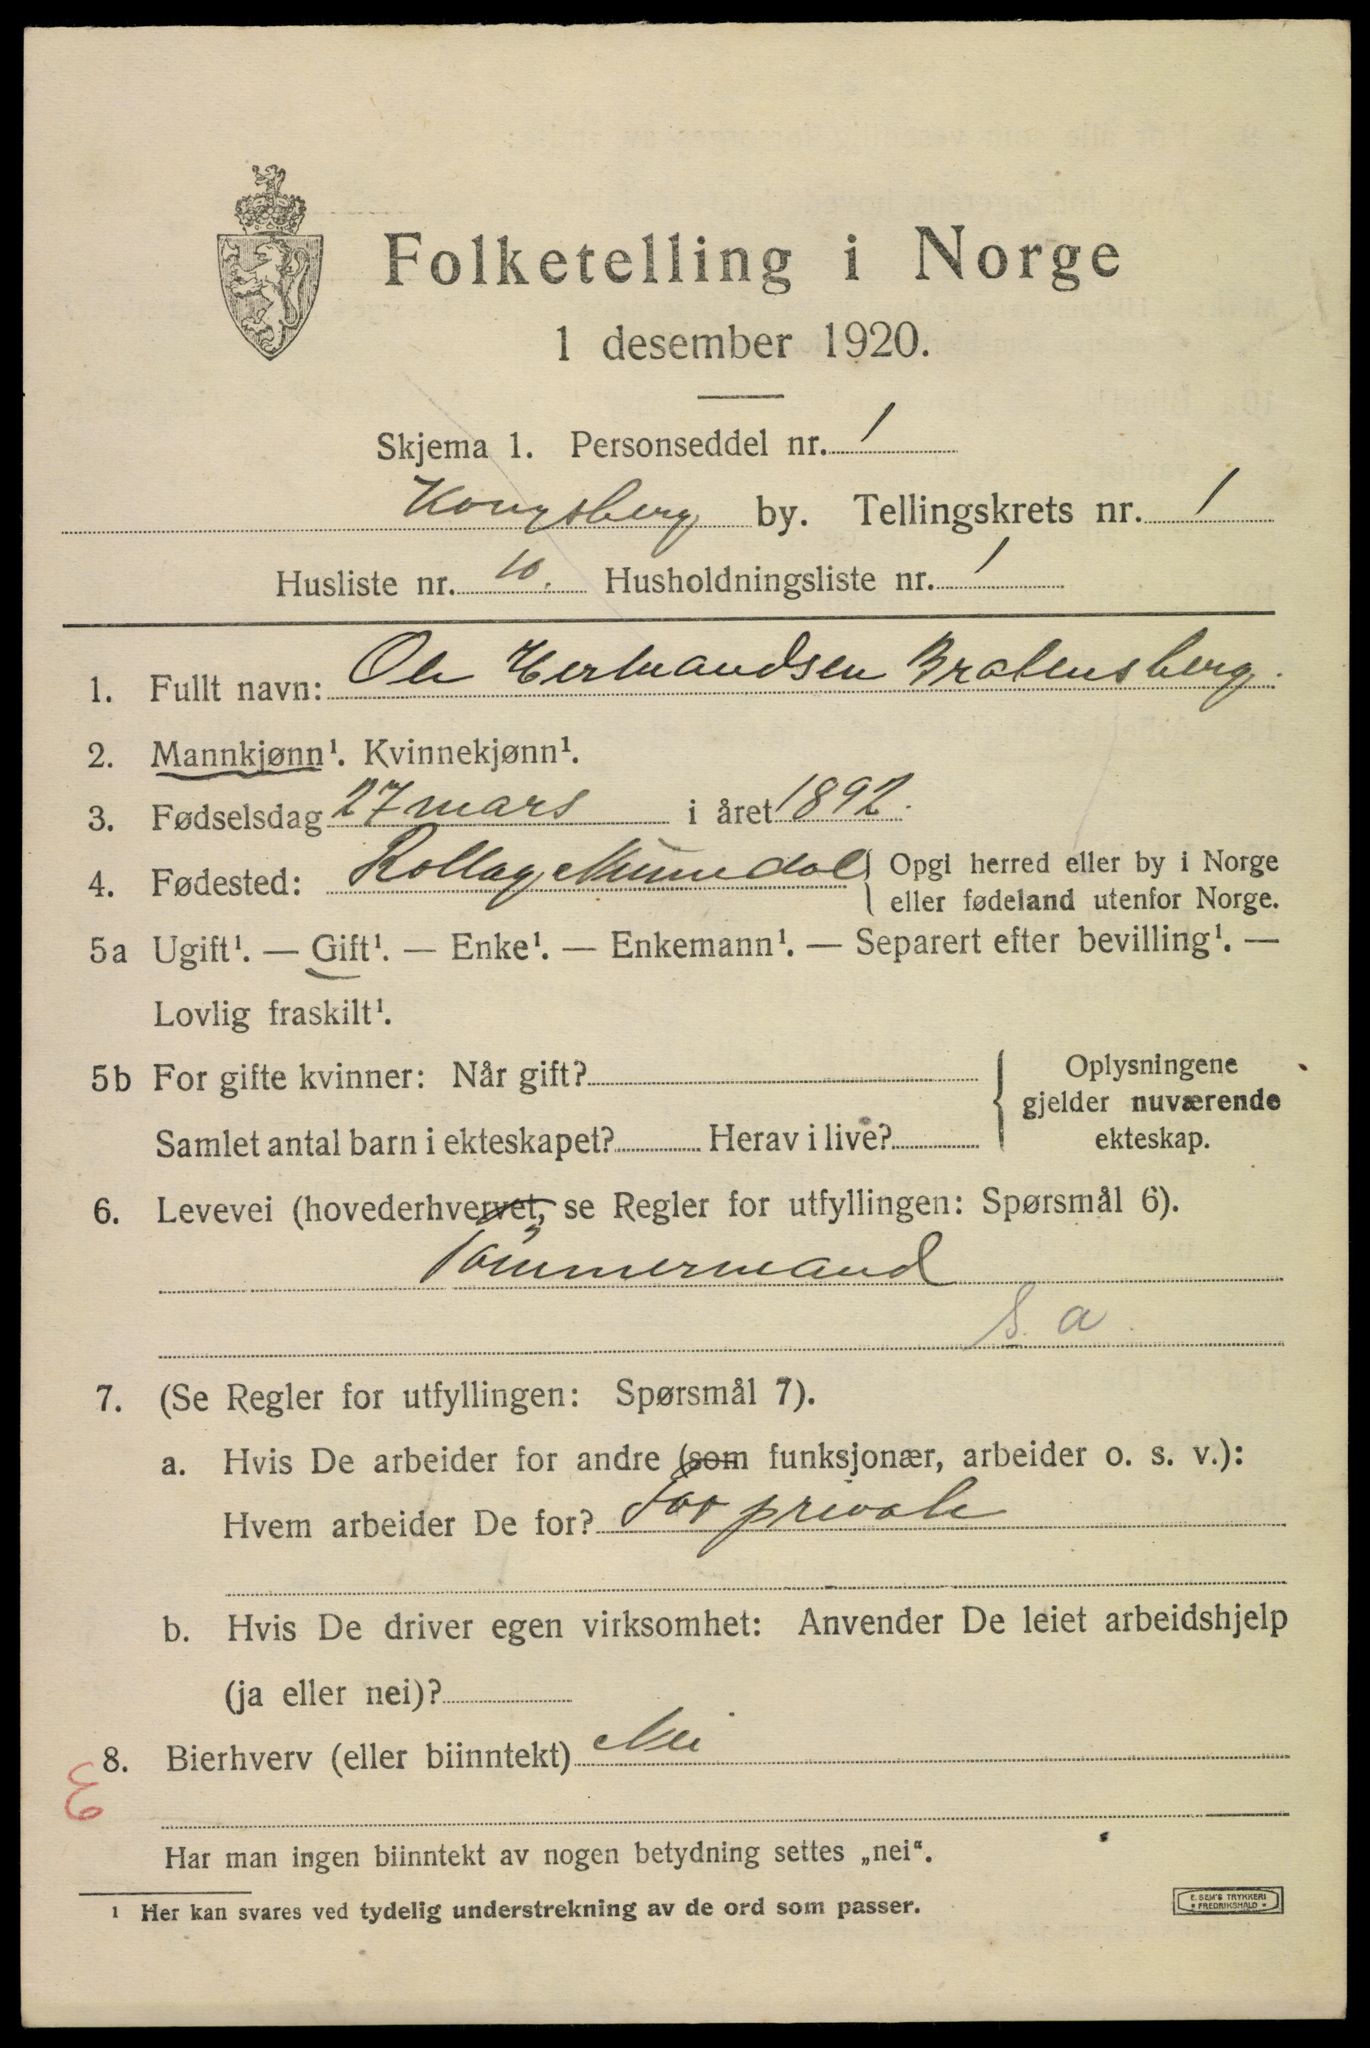 Folketelling i Norge
1 desember 1920.
Skjema 1. Personseddel nr. 1
Kongsberg by. Tellingskrets nr. 1
Husliste nr. 10. Husholdningsliste nr. 1
1. Fullt navn: Ole Herbrandsen Bratensberg.
2. Mannkjønn¹. Kvinnekjønn¹.
3. Fødselsdag 27 mars i året 1892.
4. Fødested: Rollag Numedal { Opgi herred eller by i Norge
eller fødeland utenfor Norge.
5a Ugift¹. — Gift¹. — Enke¹. — Enkemann¹. — Separert efter bevilling¹. —
Lovlig fraskilt¹.
5b For gifte kvinner: Når gift?
Samlet antal barn i ekteskapet? Herav i live?
Oplysningene
gjelder nuværende
ekteskap.
6. Levevei (hovederhvervet, se Regler for utfyllingen: Spørsmål 6).
Tömmermand
S. a.
7. (Se Regler for utfyllingen: Spørsmål 7).
a. Hvis De arbeider for andre (som funksjonær, arbeider o. s. v.):
Hvem arbeider De for? For private
b. Hvis De driver egen virksomhet: Anvender De leiet arbeidshjelp
(ja eller nei)?
8. Bierhverv (eller biinntekt) Nei
Har man ingen biinntekt av nogen betydning settes „nei“.
¹ Her kan svares ved tydelig understrekning av de ord som passer.
E. SEM'S TRYKKERI
* FREDRIKSHALD *